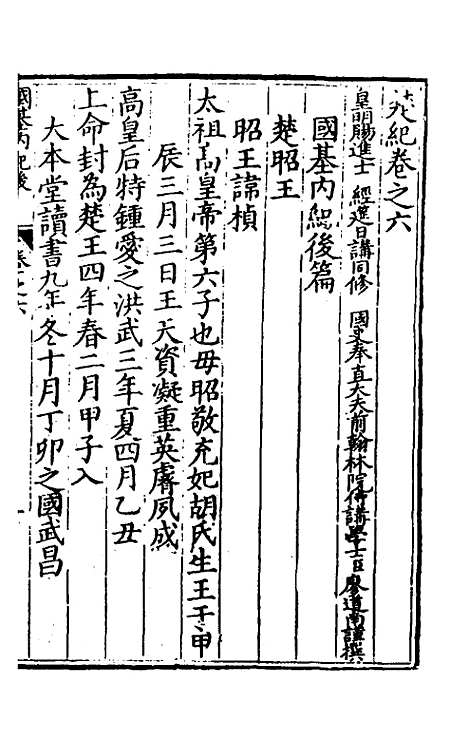 楚紀卷之六
皇明賜進士 經筵日講同修 國史奉直大夫前翰林院侍講學士臣廖道南謹撰
國基內紀後篇
楚昭王
昭王諱楨
太祖高皇帝第六子也母昭敬充妃胡氏生王于甲
辰三月三日王天資凝重英睿夙成
高皇后特鍾愛之洪武三年夏四月乙丑
上命封為楚王四年春二月甲子入
大本堂讀書九年冬十月丁卯之國武昌
國基內紀後 卷之六 一